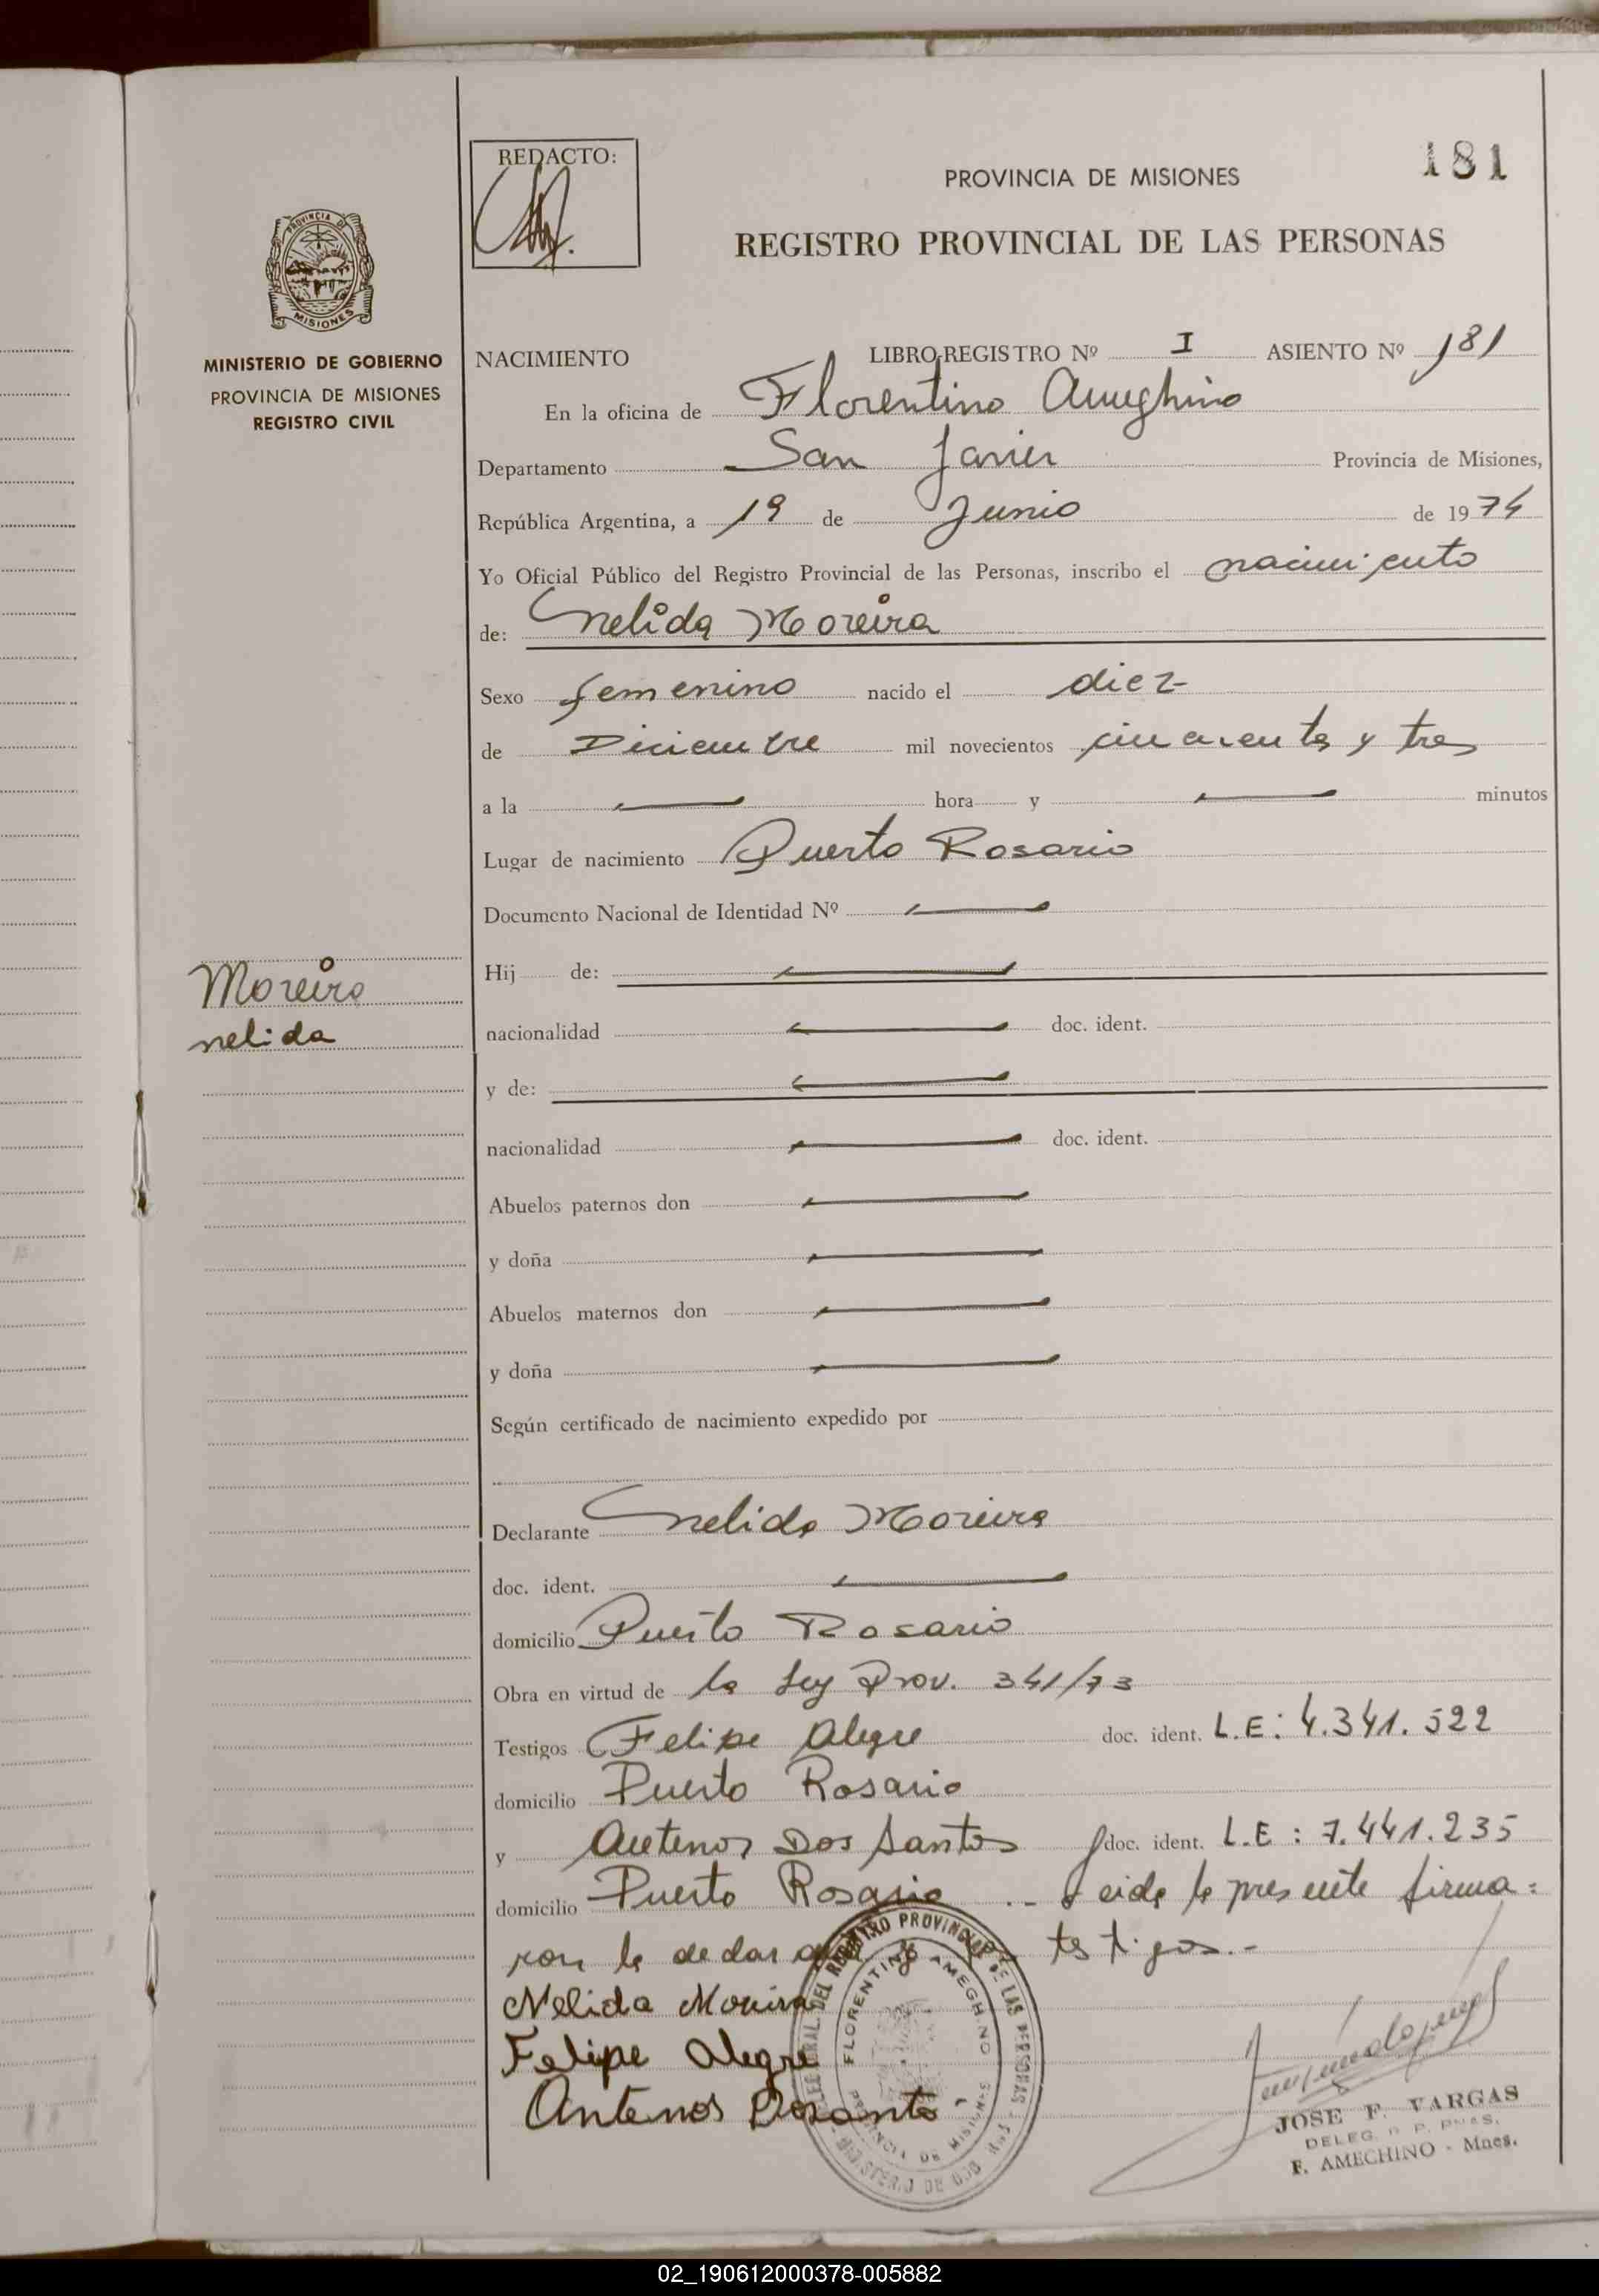 REDACTO:
181
PROVINCIA DE MISIONES
REGISTRO PROVINCIAL DE LAS PERSONAS
PROVINCIA DE
MISIONES
MINISTERIO DE GOBIERNO
PROVINCIA DE MISIONES
REGISTRO CIVIL
NACIMIENTO LIBRO REGISTRO Nº I ASIENTO Nº 181
En la oficina de Florentino Ameghino
Departamento San Javier Provincia de Misiones,
República Argentina, a 19 de Junio de 1974
Yo Oficial Público del Registro Provincial de las Personas, inscribo el nacimiento
de: Nelida Moreira
Sexo femenino nacido el diez
de Diciembre mil novecientos cincuenta y tres
a la — hora y — minutos
Lugar de nacimiento Puerto Rosario
Documento Nacional de Identidad Nº —
Moreira
nelida
Hij de: —
nacionalidad — doc. ident.
y de: —
nacionalidad — doc. ident.
Abuelos paternos don —
y doña —
Abuelos maternos don —
y doña —
Según certificado de nacimiento expedido por
Declarante Nelida Moreira
doc. ident. —
domicilio Puerto Rosario
Obra en virtud de la Ley Prov. 341/73
Testigos Felipe Alegre doc. ident. L.E: 4.341.522
domicilio Puerto Rosario
y Antenor Dos Santos doc. ident. L.E: 7.441.235
domicilio Puerto Rosario .- Leida la presente firma=
ron la declarante y testigos.-
Nelida Moreira
Felipe Alegre
Antenor Dosanto
REGISTRO PROVINCIAL DE LAS PERSONAS
FLORENTINO AMEGHINO
PROVINCIA DE MISIONES
JOSE F. VARGAS
DELEG. R. P. PNAS.
F. AMECHINO - Mnes.
02_190612000378-005882